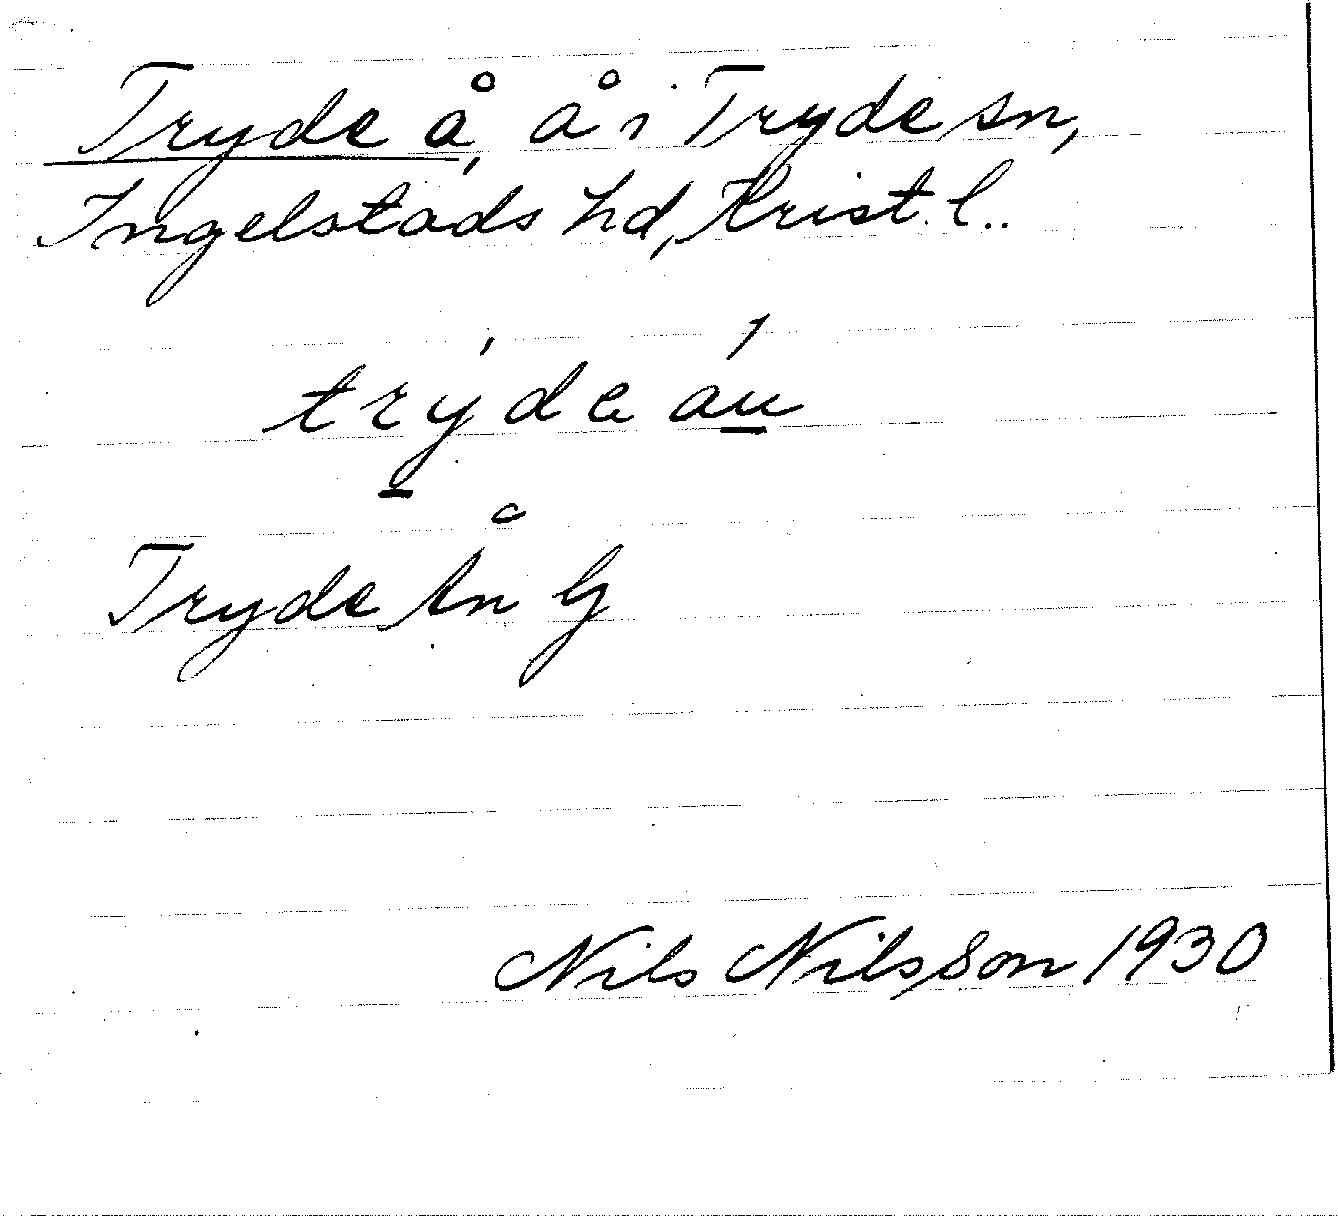 Tryde å, å i Tryde sn,
Ingelstads hd, Krist. l..
trýde áu
Tryde Ån G
Nils Nilsson 1930